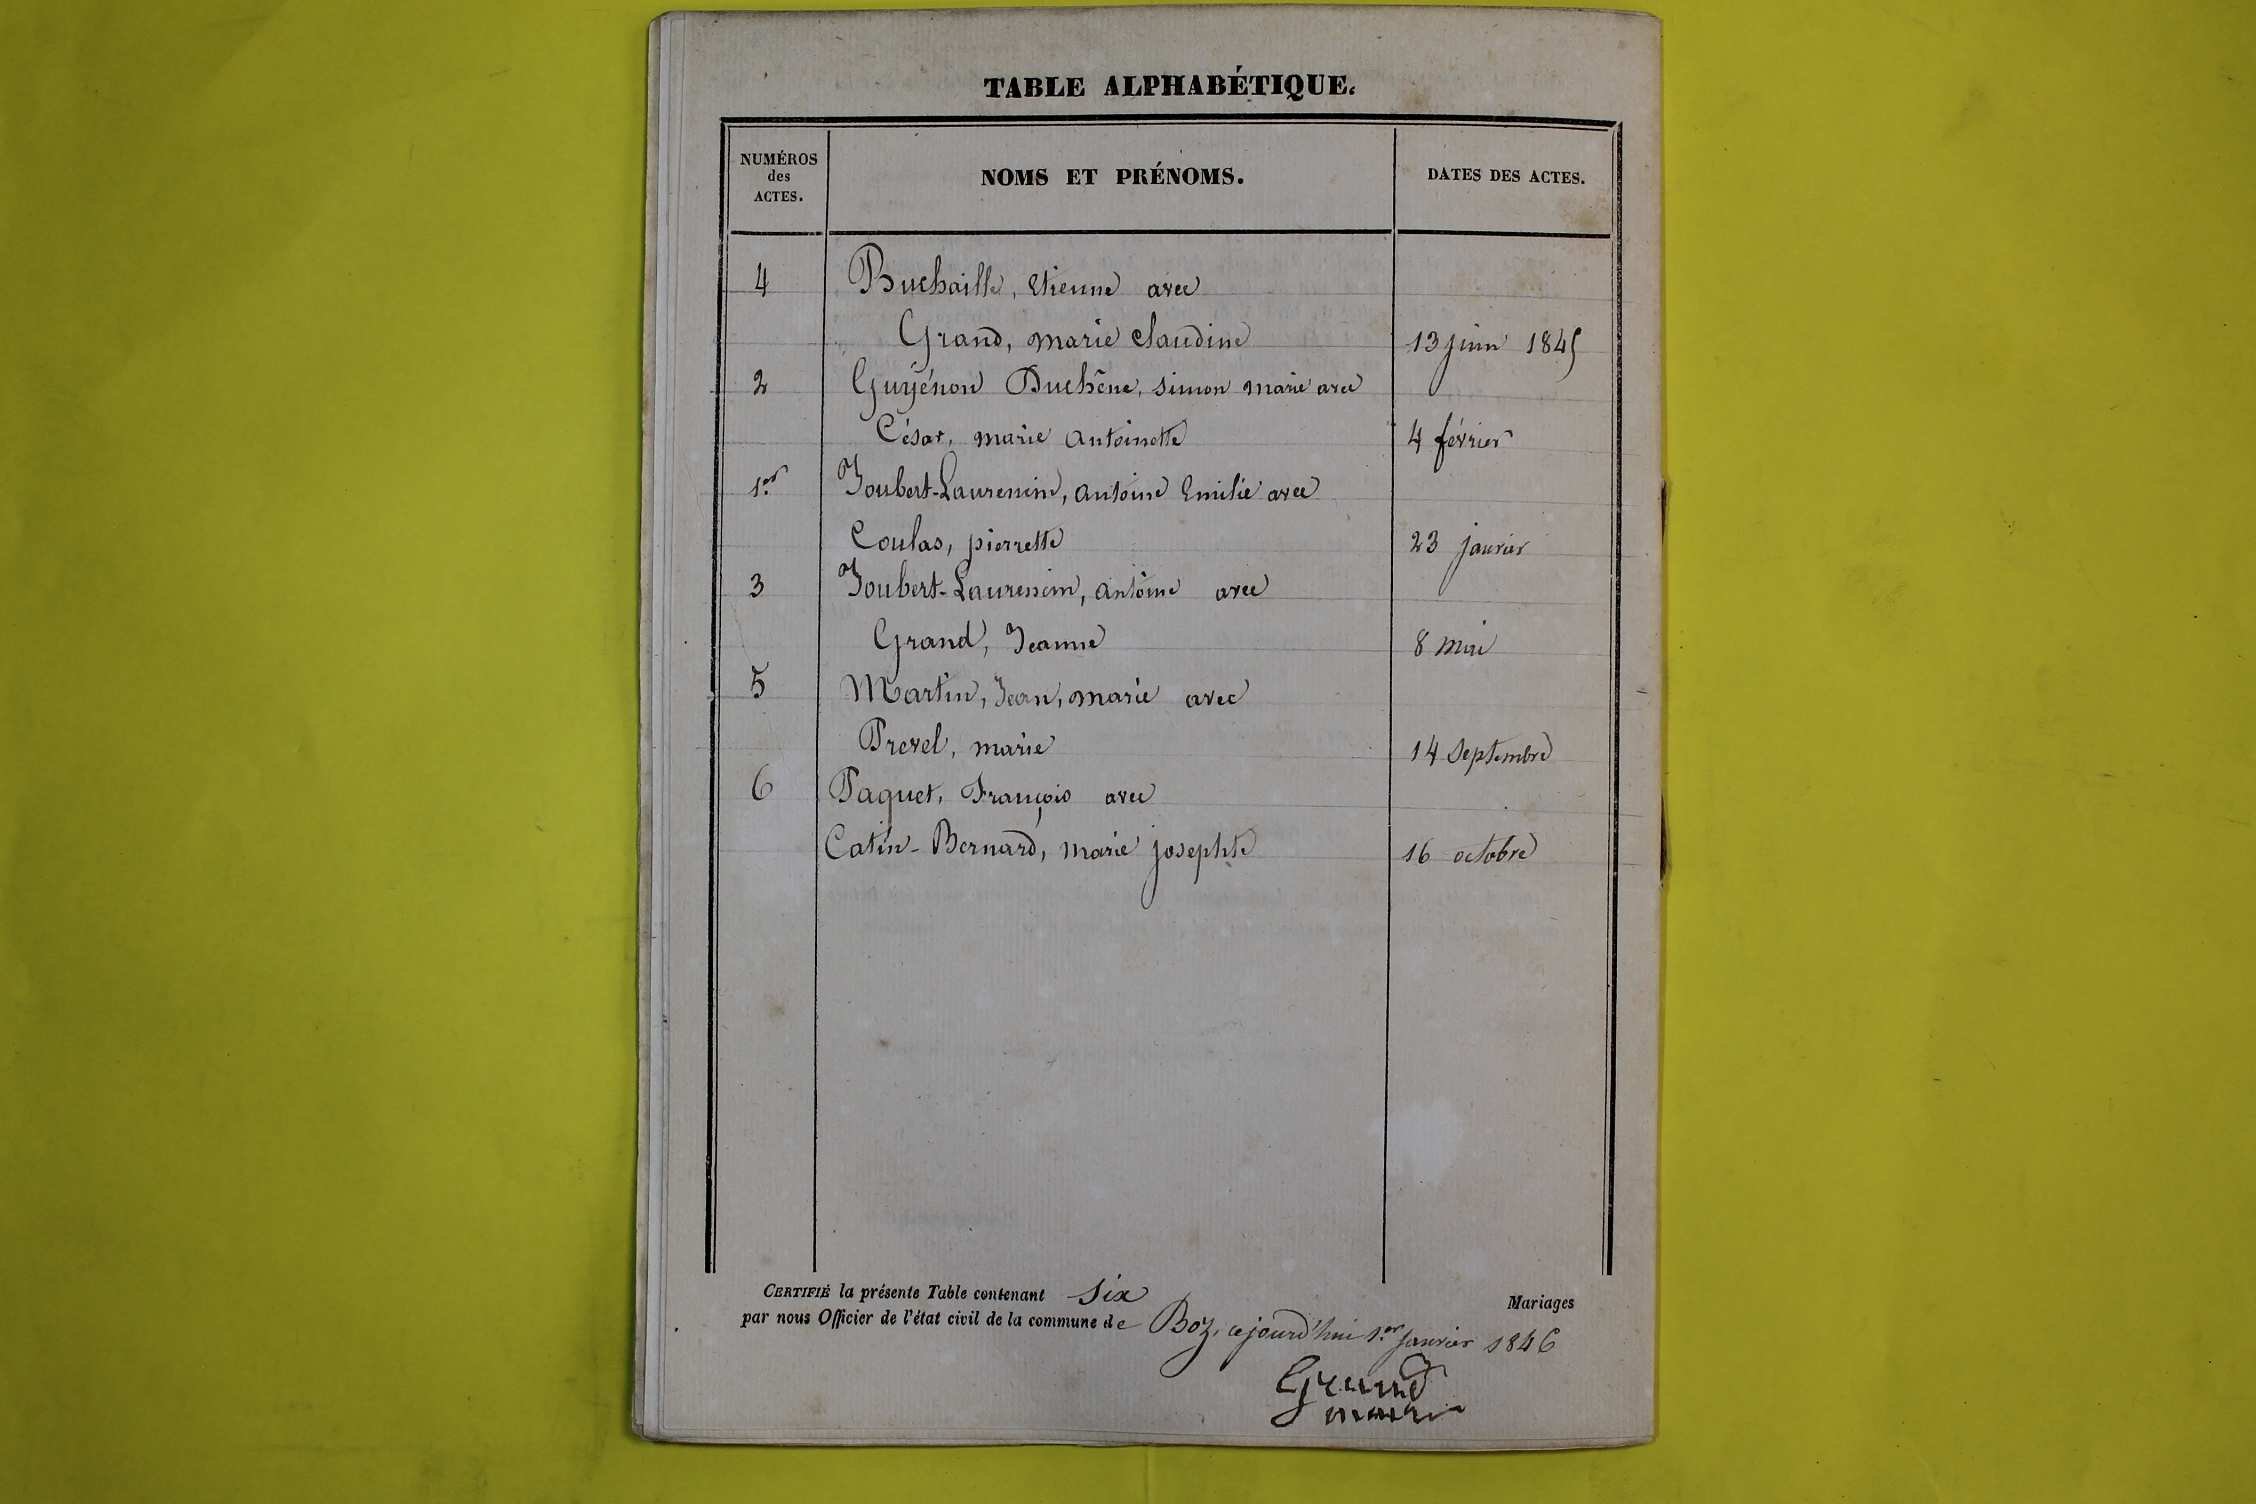 TABLE ALPHABÉTIQUE.
NUMÉROS
des
ACTES.
NOMS ET PRÉNOMS.
DATES DES ACTES.
4 Buchaille, Etienne avec
Grand, marie claudine 13 juin 1845
2 Guyénon Duchêne, simon marie avec
César, marie antoinette 4 février
1er Joubert-Laurencin, antoine Emilie avec
Coulas, pierrette 23 janvier
3 Joubert-Laurencin, antoine avec
Grand, Jeanne 8 mai
5 Martin, Jean, marie avec
Prevel, marie 14 septembre
6 Paquet, François avec
Catin-Bernard, marie josephte 16 octobre
CERTIFIÉ la présente Table contenant six Mariages
par nous Officier de l'état civil de la commune de Boz, cejourd'hui 1er janvier 1846
Grand
maire